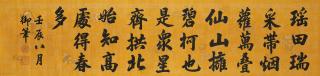 瑶田瑞
采带烟
蘿萬叠
仙山擁
碧柯也
是衆星
齊拱北
始知高
處得春
多
壬辰八月
御筆